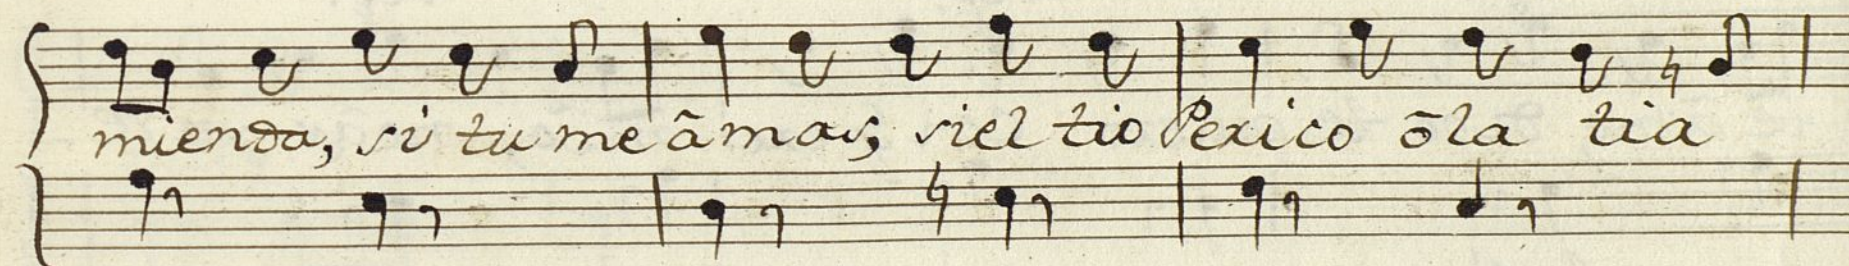 mienda, si tu me âmas, si el tio Perico ô la tia